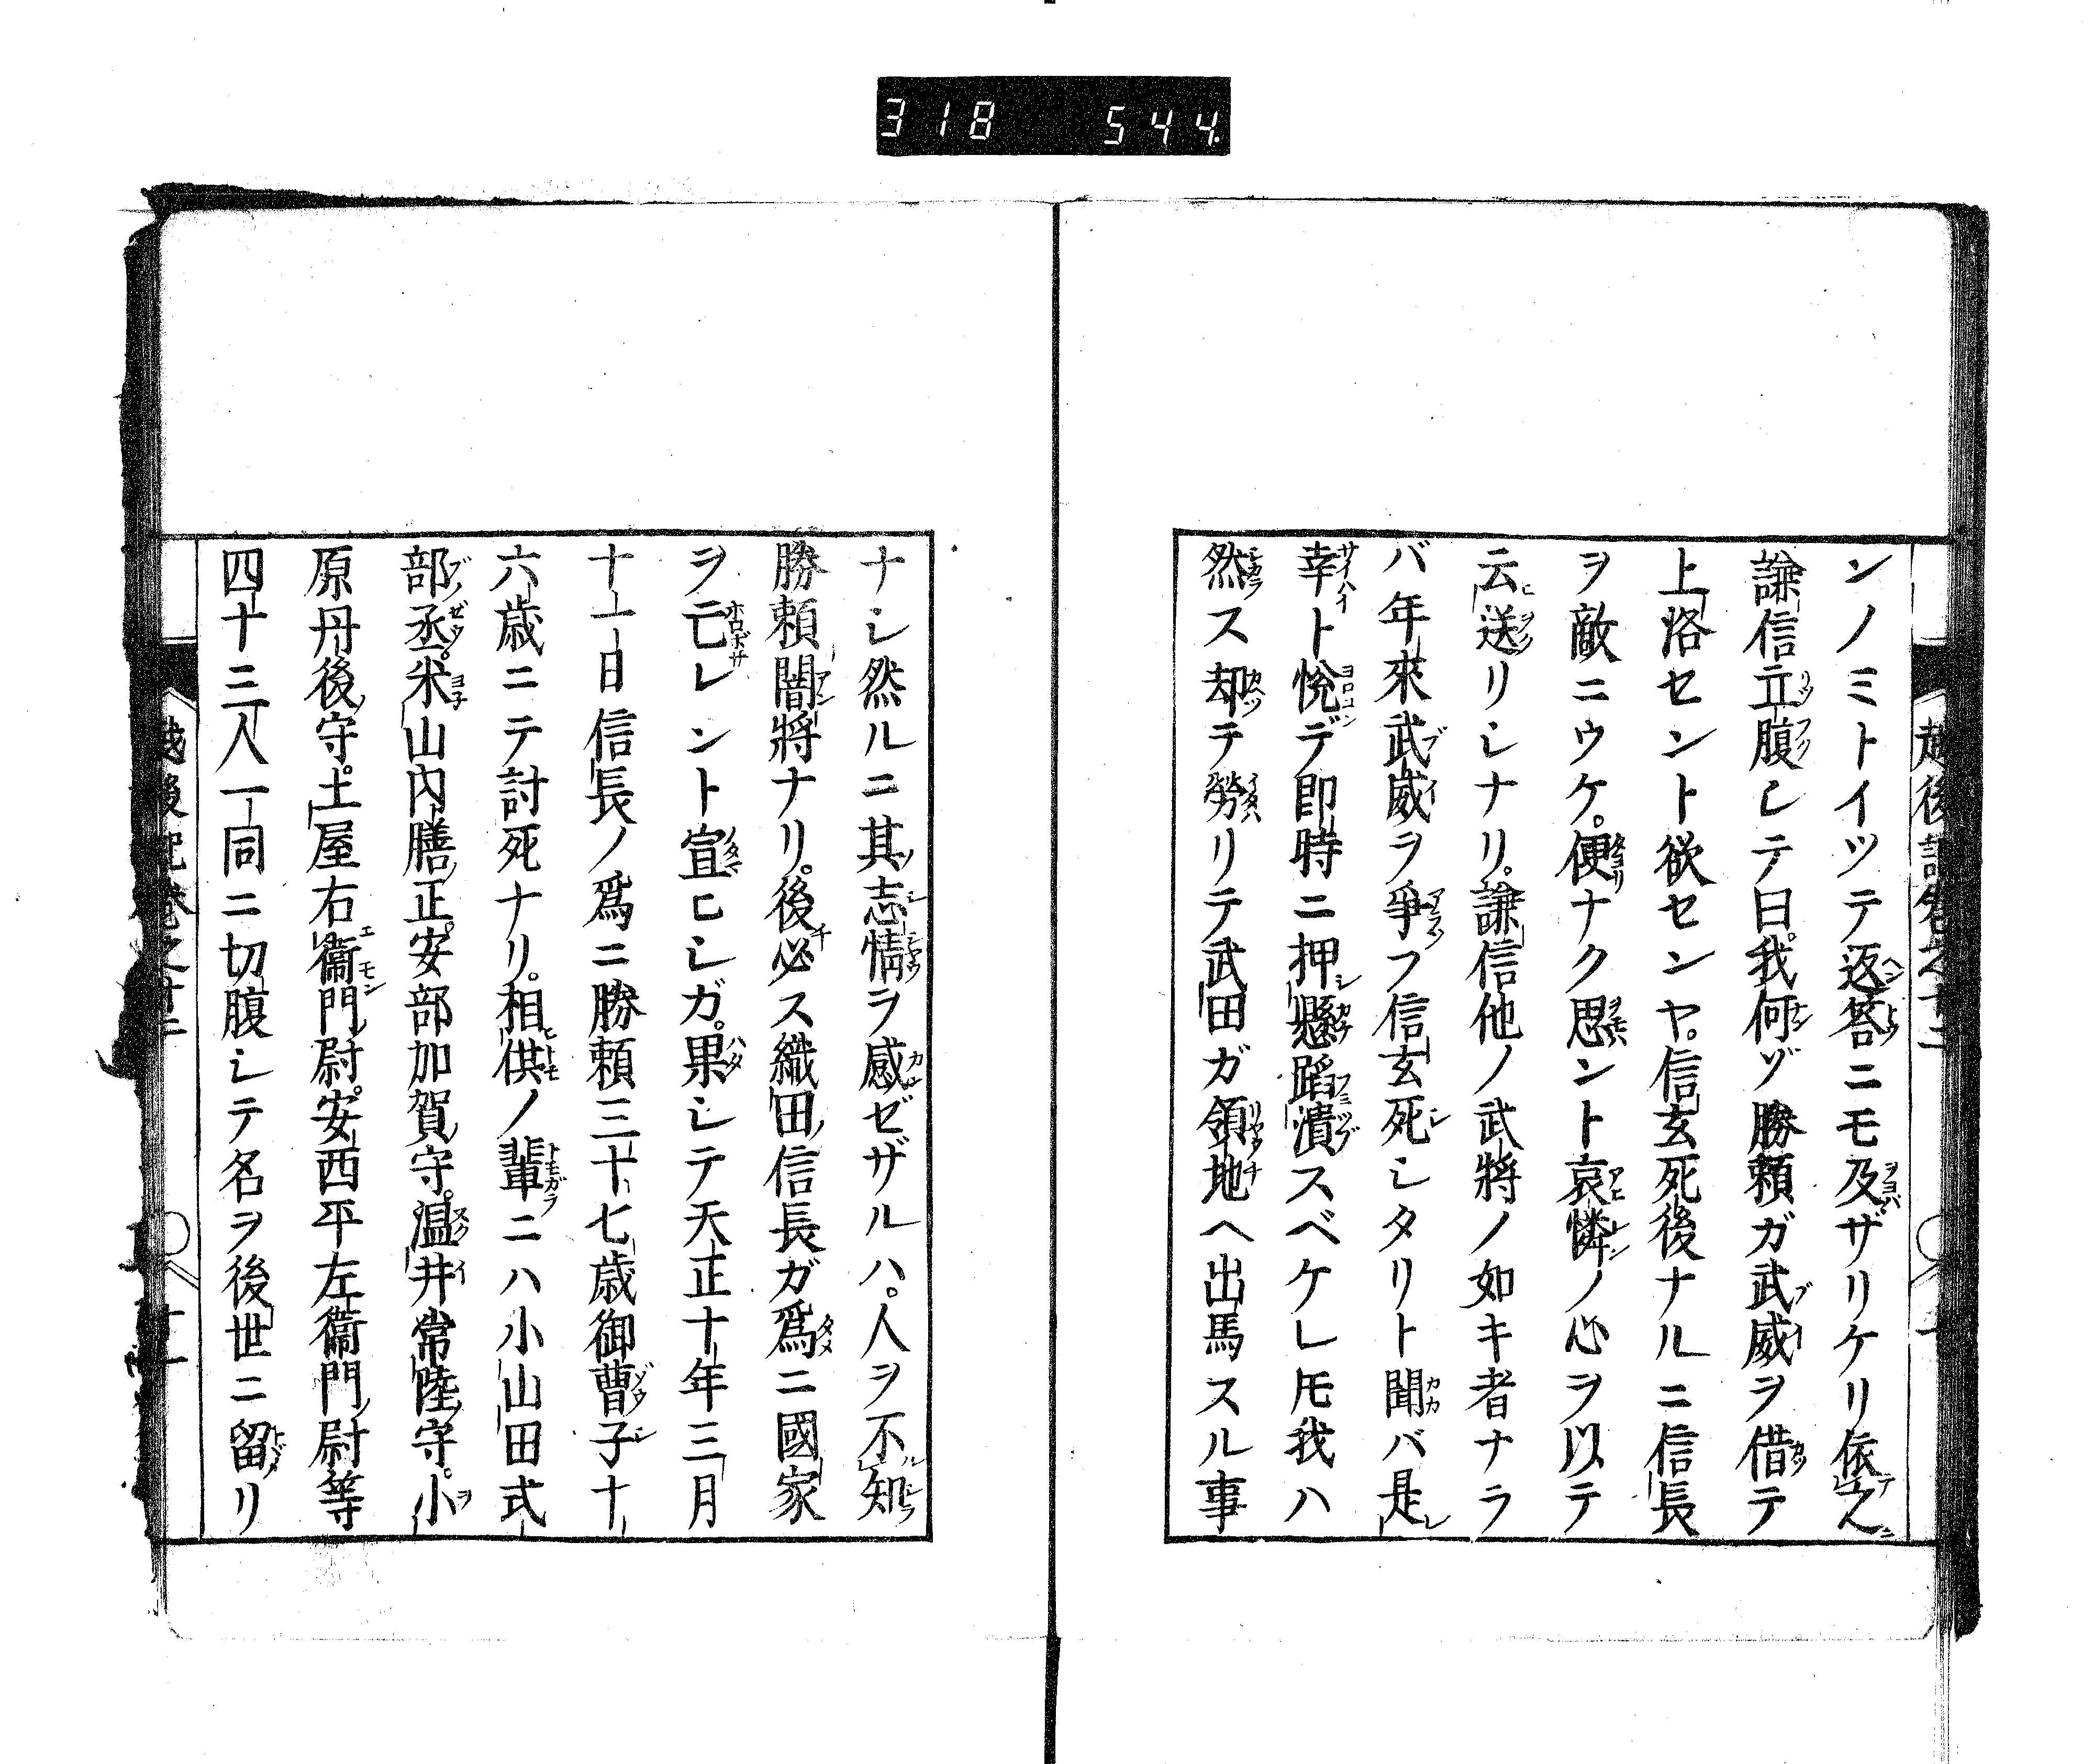 318 544
ンノミトイツテ返答ニモ及ザリケリ依之
謙信立腹シテ曰。我何ゾ勝頼ガ武威ヲ借テ
上洛セント欲センヤ。信玄死後ナルニ信長
ヲ敵ニウケ。便ナク思ント哀憐ノ心ヲ以テ
云送リシナリ。謙信他ノ武將ノ如キ者ナラ
バ年來武威ヲ爭フ信玄死シタリト聞バ是
幸ト悦デ即時ニ押懸蹈潰スベケレ𪜈我ハ
然ス却テ勞リテ武田ガ領地ヘ出馬スル事
ナシ然ルニ其志情ヲ感ゼザルハ。人ヲ不知
勝頼闇將ナリ。後必ス織田信長ガ爲ニ國家
ヲ亡レント宣ヒシガ。果シテ天正十年三月
十一日信長ノ爲ニ勝頼三十七歳御曹子十
六歳ニテ討死ナリ。相供ノ輩ニハ小山田式
部丞。米山内膳正。安部加賀守。温井常陸守。小
原丹後守。土屋右衞門尉。安西平左衞門尉等
四十三人一同ニ切腹シテ名ヲ後世ニ留リ
十一